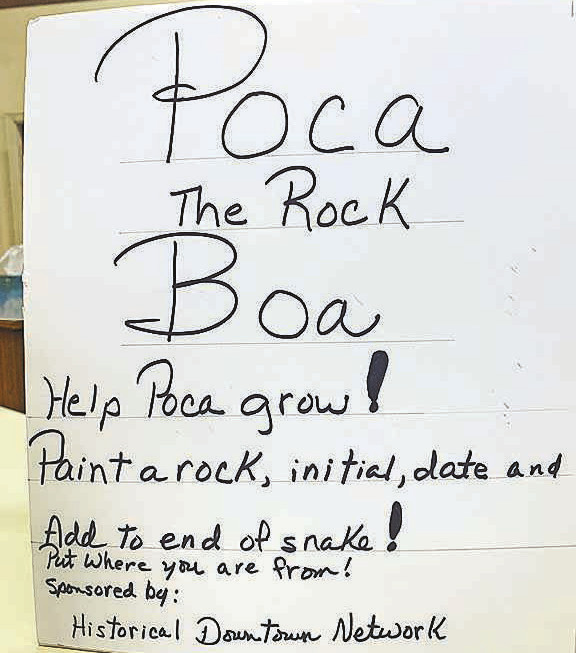 Poca
The Rock
Boa
Help Poca grow!
Paint a rock, initial, date and
Add to end of snake!
Put where you are from!
Sponsored by:
Historical Downtown Network